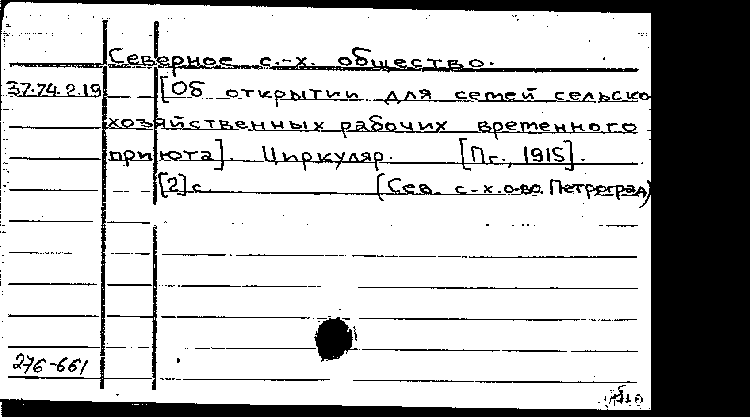 Северное с.-х. общество.
37.74.2.19 [Об открытии для семей сельско
хозяйственных рабочих временного
приюта]. Циркуляр. [Пг., 1915].
[2] с. (Сев. с-х. о-во. Петроград)
276-661